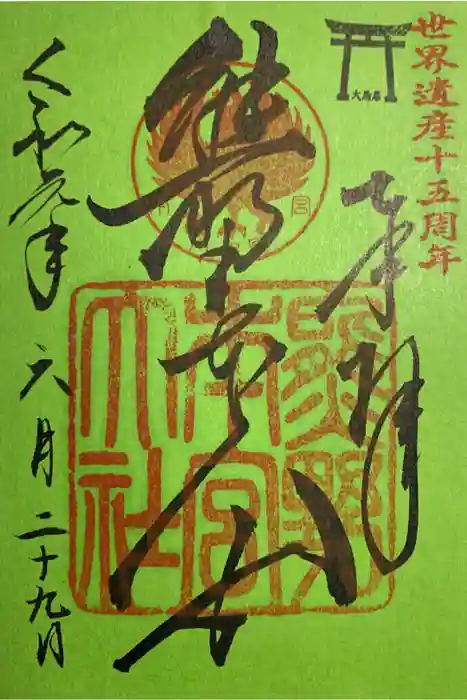 世界遺産十五周年
大鳥居
奉拝
熊野
熊野
本宮
大社
令和元年 六月二十九日